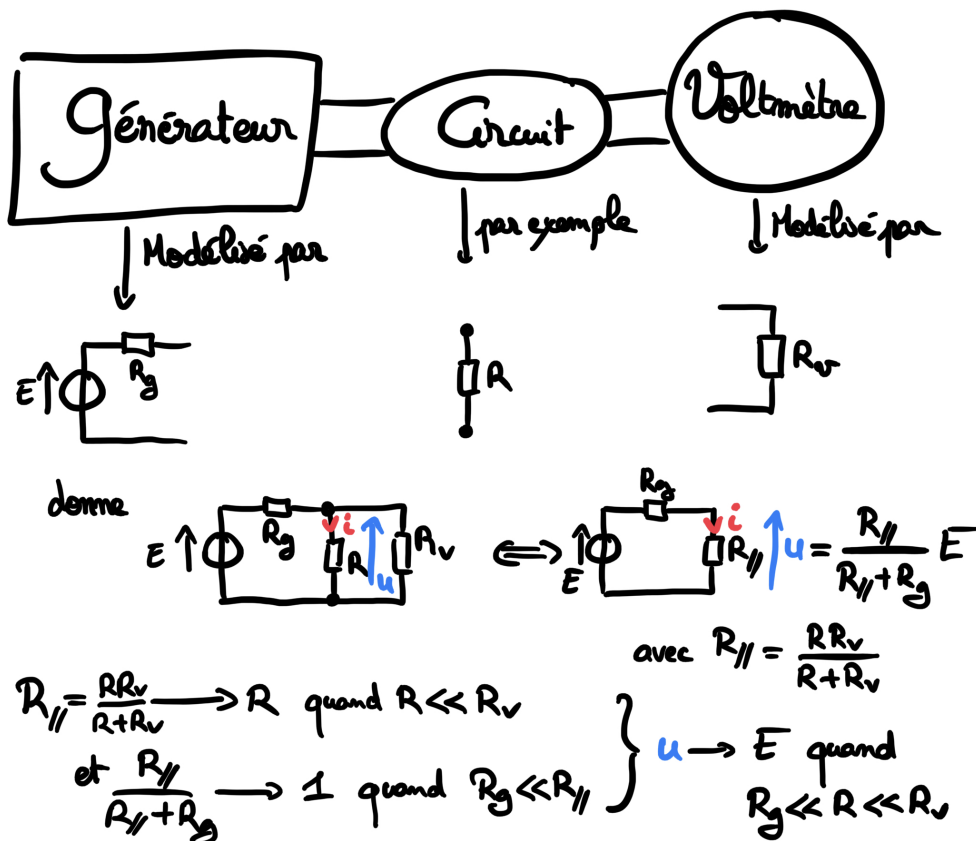 Générateur Circuit Voltmètre
Modélisé par par exemple Modélisé par
E Rg R Rv
donne E Rg i R u Rv ⟺ E Rg i R// u = R///(R//+Rg) E
avec R// = RRv/(R+Rv)
R// = RRv/(R+Rv) → R quand R << Rv
et R///(R//+Rg) → 1 quand Rg << R// } u → E quand
Rg << R << Rv